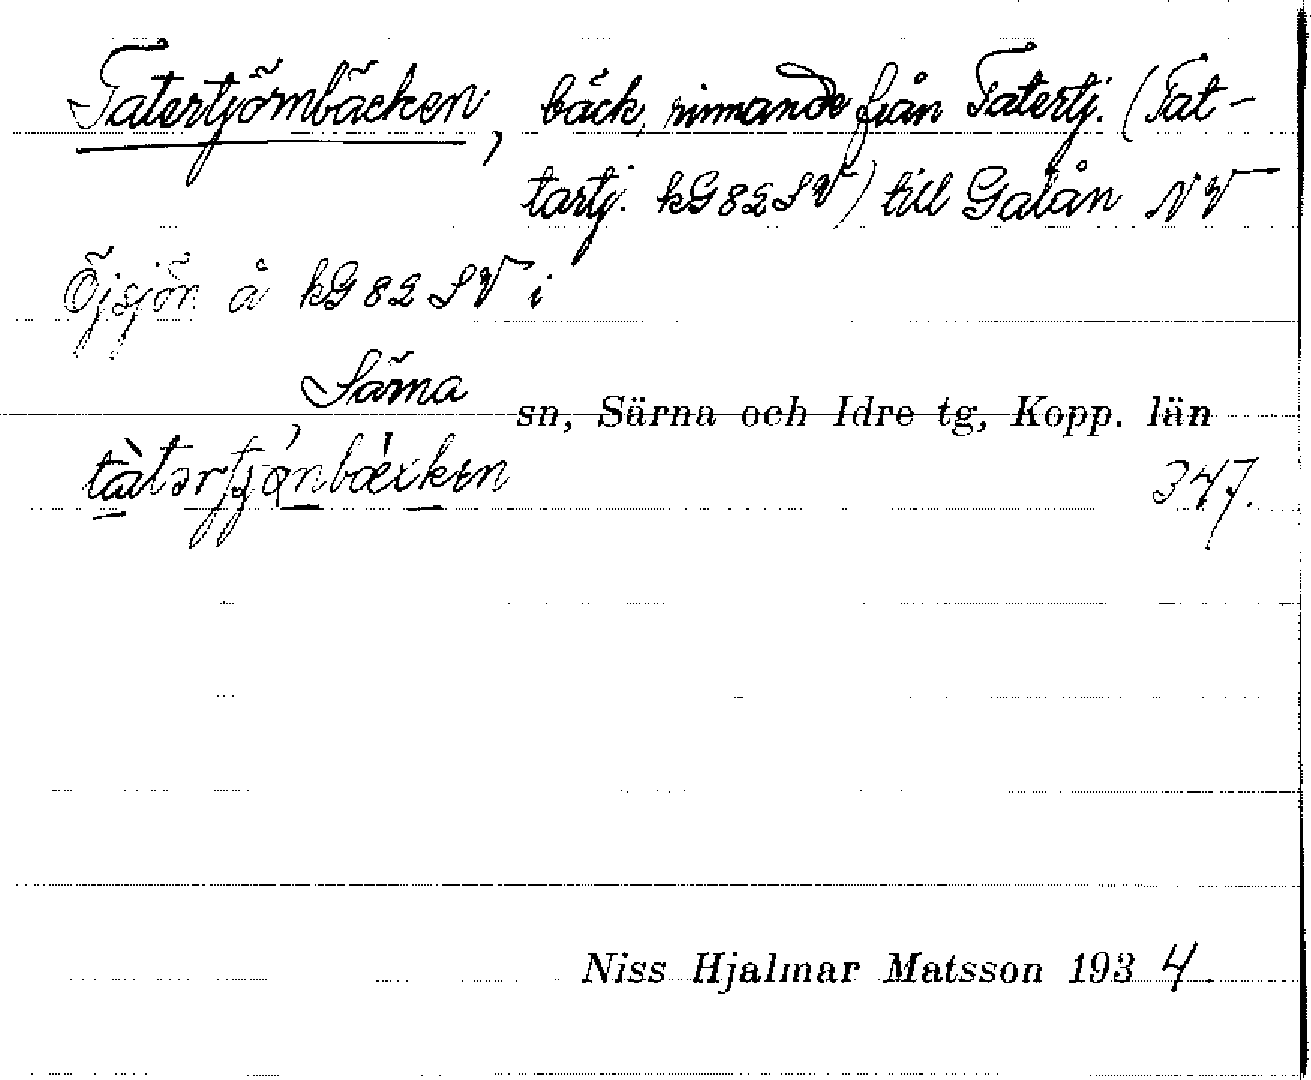 Tatertjörnbäcken, bäck, rinnande från Tatertj. (Tat-
tartj. kG82SV) till Galån NV
Öjsjön å kG82SV i
Särna sn, Särna och Idre tg, Kopp. län
347.
Niss Hjalmar Matsson 1934.